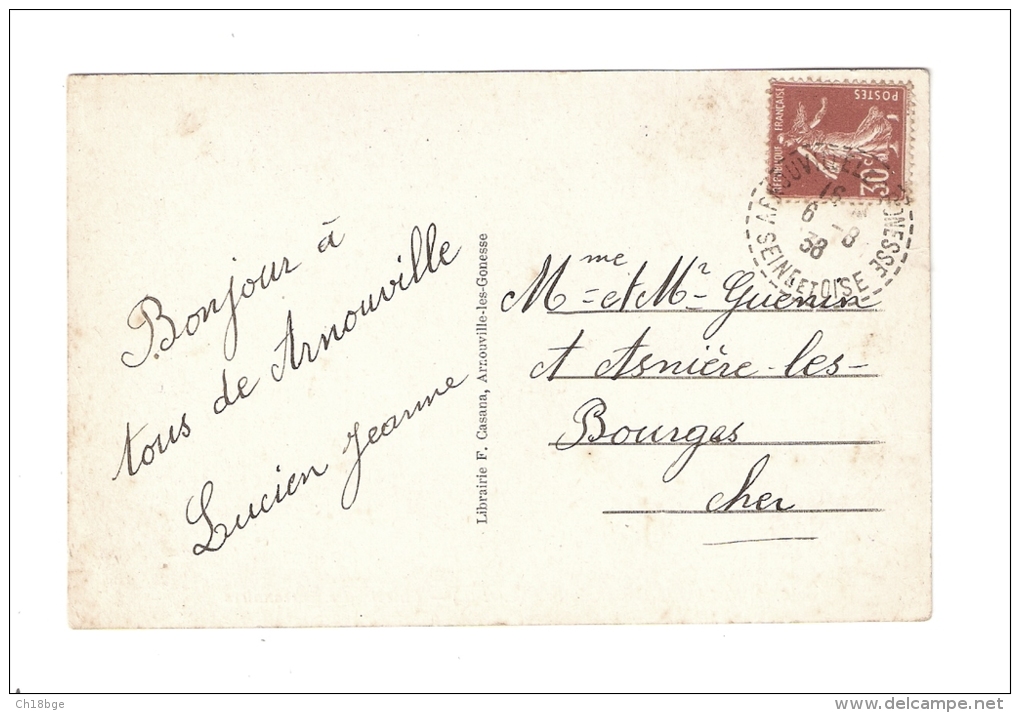 Bonjour à
tous de Arnouville
Lucien Jeanne
Librairie F. Casana, Arnouville-les-Gonesse
RÉPUBLIQUE FRANÇAISE
POSTES
30c
16
6 - 8
38
SEINE ET OISE
Mme et Mr Guenin
A Asnière-les-
Bourges
Cher
Ch18bge
delcampe.net